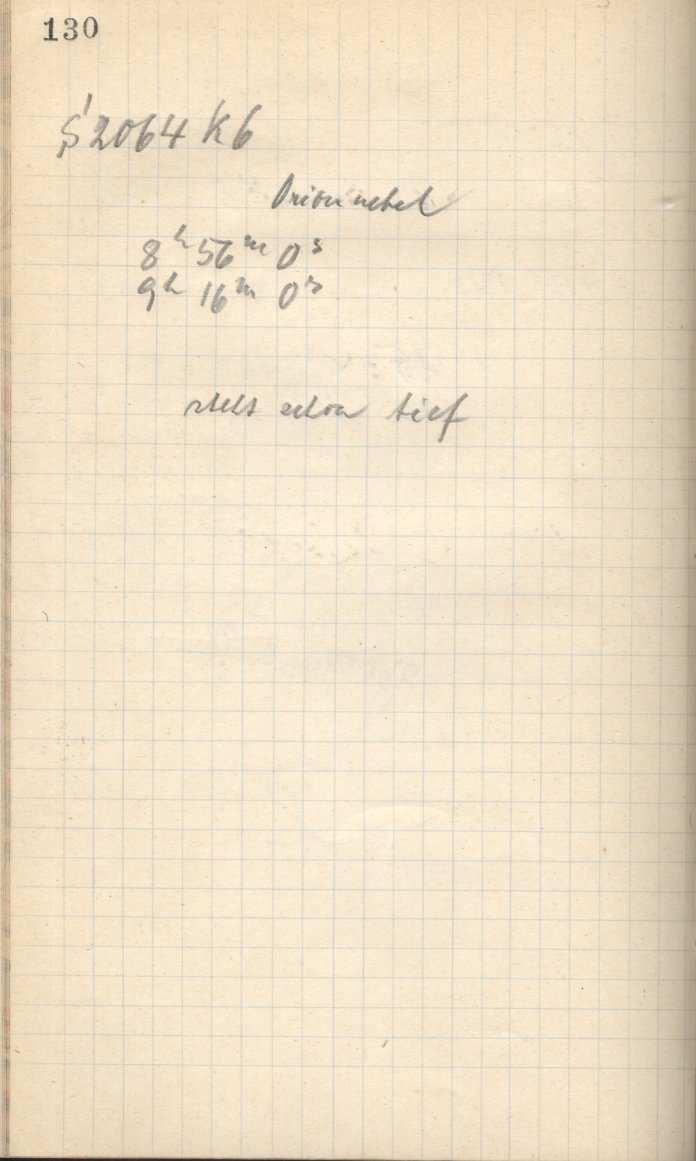 130
S'2064 K6
Orionnebel
8h 56m 0s
9h 16m 0s
steht schon tief